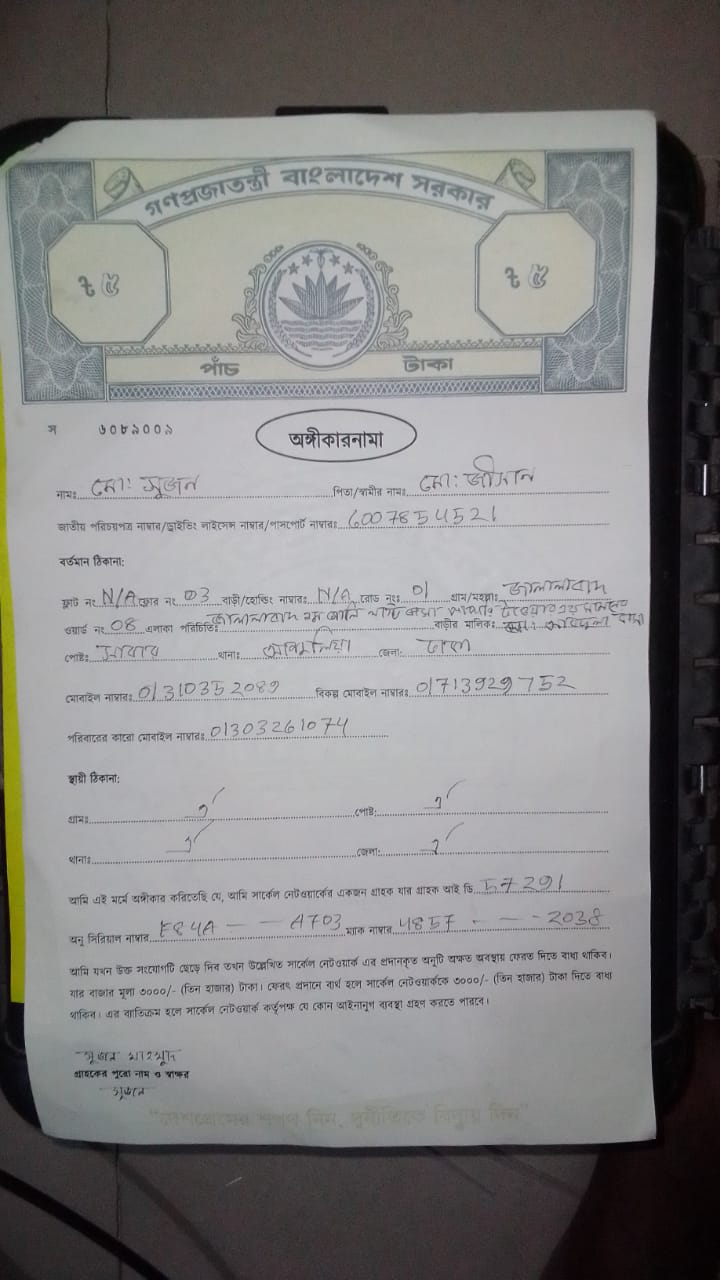 গণপ্রজাতন্ত্রী বাংলাদেশ সরকার
৳ ৫ ৳ ৫
পাঁচ টাকা
স ৬০৮৯০০৯
অঙ্গীকারনামা
নামঃ মো: সুজন পিতা/স্বামীর নামঃ মো: জীসান
জাতীয় পরিচয়পত্র নাম্বার/ড্রাইভিং লাইসেন্স নাম্বার/পাসপোর্ট নাম্বারঃ 6007854521
বর্তমান ঠিকানা:
ফ্লাট নং N/A ফ্লোর নং 03 বাড়ী/হোল্ডিং নাম্বারঃ N/A রোড নংঃ 01 গ্রাম/মহল্লাঃ জালালাবাদ
ওয়ার্ড নং 08 এলাকা পরিচিতিঃ জালালাবাদ বাড়ীর মালিকঃ
পোষ্টঃ সাভার থানাঃ জেলা: ঢাকা
মোবাইল নাম্বারঃ 01310352089 বিকল্প মোবাইল নাম্বারঃ 01713929752
পরিবারের কারো মোবাইল নাম্বারঃ 01303261074
স্থায়ী ঠিকানা:
গ্রামঃ ঐ পোষ্ট: ঐ
থানাঃ ঐ জেলা: ঐ
আমি এই মর্মে অঙ্গীকার করিতেছি যে, আমি সার্কেল নেটওয়ার্কের একজন গ্রাহক যার গ্রাহক আই ডি 57291
অনু সিরিয়াল নাম্বার F84A - - A703 ম্যাক নাম্বার 4857 - - - 2038
আমি যখন উক্ত সংযোগটি ছেড়ে দিব তখন উল্লেখিত সার্কেল নেটওয়ার্ক এর প্রদানকৃত অনুটি অক্ষত অবস্থায় ফেরত দিতে বাধ্য থাকিব।
যার বাজার মূল্য ৩০০০/- (তিন হাজার) টাকা। ফেরৎ প্রদানে ব্যর্থ হলে সার্কেল নেটওয়ার্ককে ৩০০০/- (তিন হাজার) টাকা দিতে বাধ্য
থাকিব। এর ব্যতিক্রম হলে সার্কেল নেটওয়ার্ক কর্তৃপক্ষ যে কোন আইনানুগ ব্যবস্থা গ্রহণ করতে পারবে।
সুজন মাহমুদ
গ্রাহকের পুরো নাম ও স্বাক্ষর
সুজন
"দেশপ্রেমের শপথ নিন, দুর্নীতিকে বিদায় দিন"